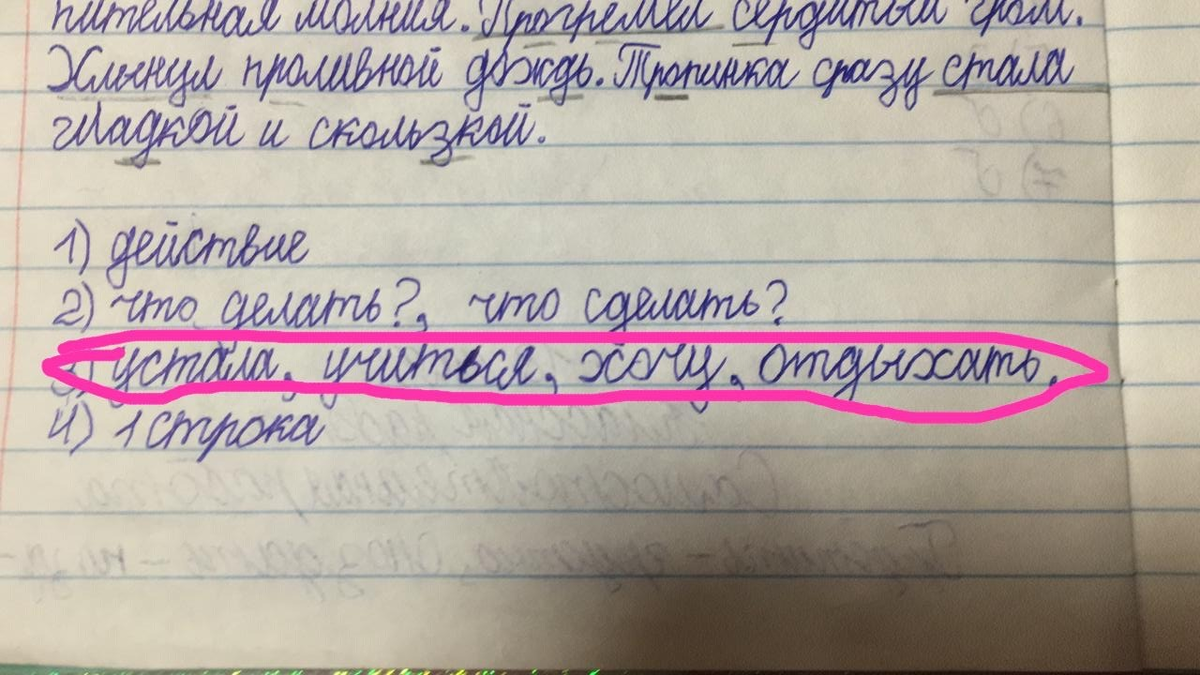 пительная молния. Прогремел сердитый гром.
Хлынул проливной дождь. Тропинка сразу стала
гладкой и скользкой.
1) действие
2) что делать?, что сделать?
3) устала, учиться, хочу, отдыхать.
4) 1 строка